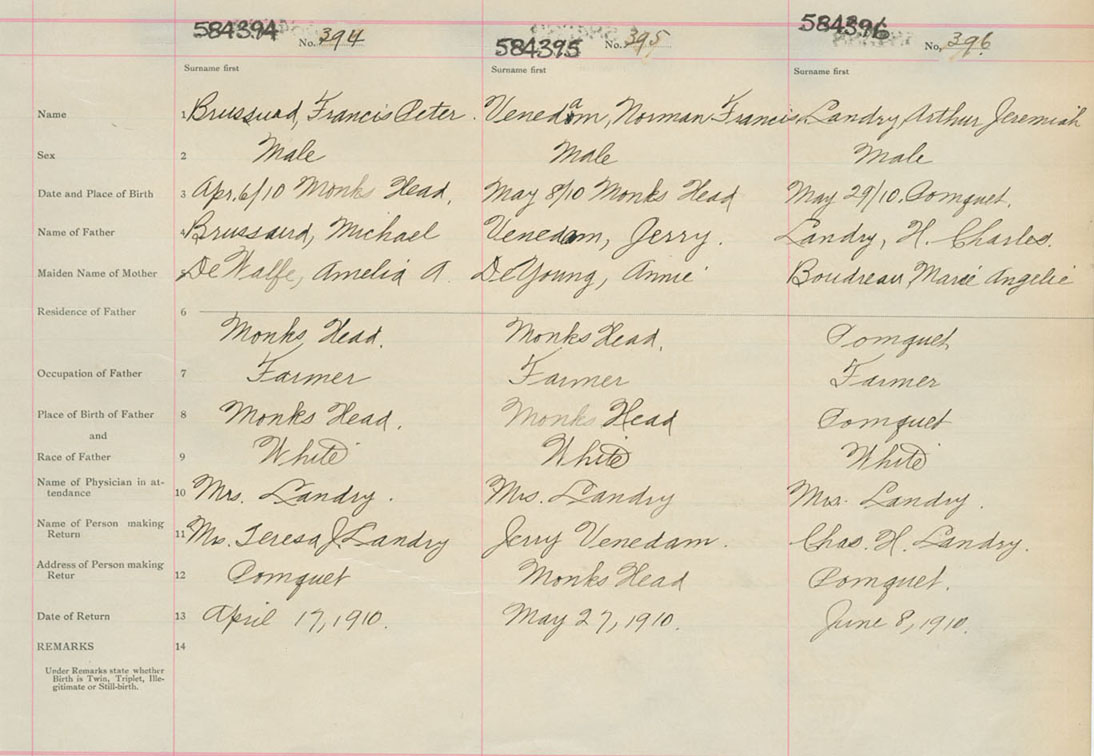 584394 No. 394 584395 No. 395 584396 No. 396
Surname first Surname first Surname first
Name 1 Brussard, Francis Peter. Venedam, Norman Francis Landry, Arthur Jeremiah
Sex 2 Male Male Male
Date and Place of Birth 3 Apr. 6/10 Monks Head, May 8/10 Monks Head May 29/10. Pomquet.
Name of Father 4 Brussard, Michael Venedam, Jerry. Landry, H. Charles.
Maiden Name of Mother De Wolfe, Amelia A. De Young, Annie Boudreau, Marie Angelie
Residence of Father 6
Monks Head. Monks Head. Pomquet
Occupation of Father 7 Farmer Farmer Farmer
Place of Birth of Father 8 Monks Head. Monks Head Pomquet
and
Race of Father 9 White White White
Name of Physician in at-
tendance 10 Mrs. Landry. Mrs. Landry Mrs. Landry.
Name of Person making
Return 11 Mrs. Teresa J. Landry Jerry Venedam. Chas. H. Landry.
Address of Person making
Retur 12 Pomquet Monks Head Pomquet.
Date of Return 13 April 17, 1910. May 27, 1910. June 8, 1910.
REMARKS 14
Under Remarks state whether
Birth is Twin, Triplet, Ille-
gitimate or Still-birth.